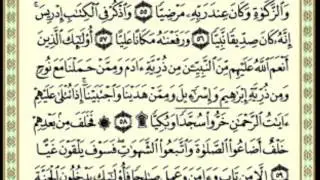 وَالزَّكَوٰةِ وَكَانَ عِندَ رَبِّهِۦ مَرْضِيًّا ٥٥ وَٱذْكُرْ فِى ٱلْكِتَٰبِ إِدْرِيسَ ۚ
إِنَّهُۥ كَانَ صِدِّيقًا نَّبِيًّا ٥٦ وَرَفَعْنَٰهُ مَكَانًا عَلِيًّا ٥٧ أُو۟لَٰٓئِكَ ٱلَّذِينَ
أَنْعَمَ ٱللَّهُ عَلَيْهِم مِّنَ ٱلنَّبِيِّـۧنَ مِن ذُرِّيَّةِ ءَادَمَ وَمِمَّنْ حَمَلْنَا مَعَ نُوحٍ
وَمِن ذُرِّيَّةِ إِبْرَٰهِيمَ وَإِسْرَٰٓءِيلَ وَمِمَّنْ هَدَيْنَا وَٱجْتَبَيْنَآ ۚ إِذَا تُتْلَىٰ عَلَيْهِمْ
ءَايَٰتُ ٱلرَّحْمَٰنِ خَرُّوا۟ سُجَّدًا وَبُكِيًّا ٥٨ فَخَلَفَ مِنۢ بَعْدِهِمْ
خَلْفٌ أَضَاعُوا۟ ٱلصَّلَوٰةَ وَٱتَّبَعُوا۟ ٱلشَّهَوَٰتِ ۖ فَسَوْفَ يَلْقَوْنَ غَيًّا ٥٩
إِلَّا مَن تَابَ وَءَامَنَ وَعَمِلَ صَٰلِحًا فَأُو۟لَٰٓئِكَ يَدْخُلُونَ ٱلْجَنَّةَ